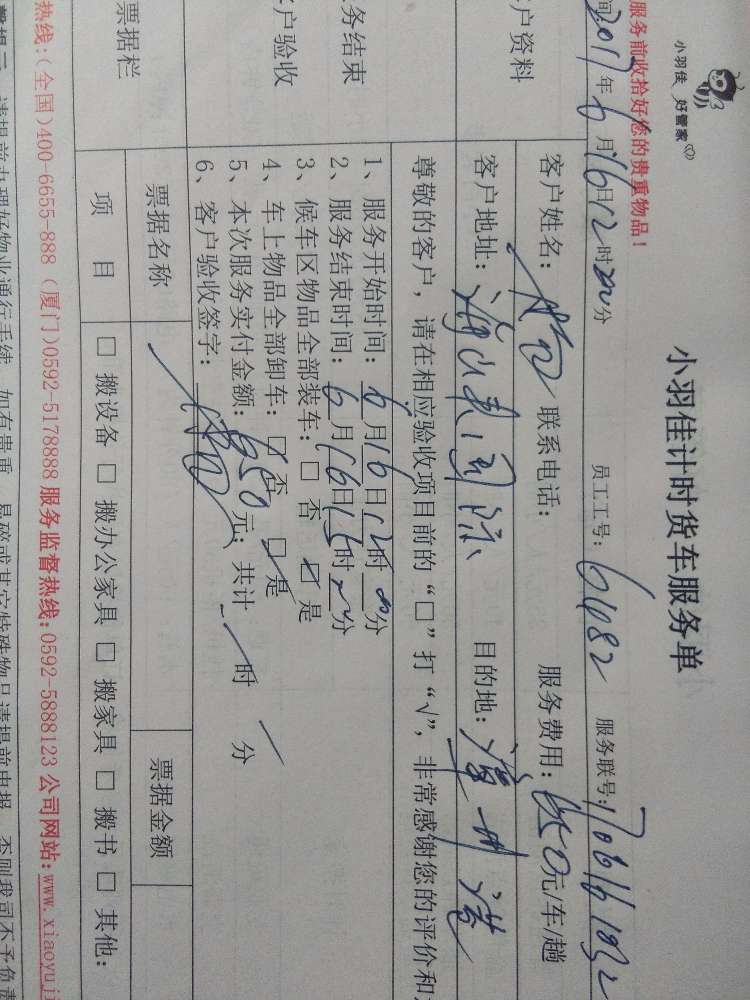 小羽佳 好管家
小羽佳计时货车服务单
服务前收拾好您的贵重物品！
间2017年6月16日12时00分 员工工号：6482 服务联号：
户资料
客户姓名： 联系电话： 服务费用：650元/车/趟
客户地址： 国际 目的地：漳州港
尊敬的客户，请在相应验收项目前的“□”打“√”，非常感谢您的评价和
务结束
户验收
1、服务开始时间：6月16日12时00分
2、服务结束时间：6月16日15时00分
3、候车区物品全部装车：□ 否 ☑ 是
4、车上物品全部卸车：□ 否 ☑ 是
5、本次服务实付金额：650元；共计 时 分
6、客户验收签字：
票据栏
票据名称 票据金额
项 目 □ 搬设备 □ 搬办公家具 □ 搬家具 □ 搬书 □ 其他：
热线：(全国)400-6655-888 (厦门)0592-5178888 服务监督热线：0592-5888123 公司网站：www.xiaoyuj
请提前办理好物业通行手续，如有贵重、易碎或其它特殊物品请提前申报，否则我司不予负责